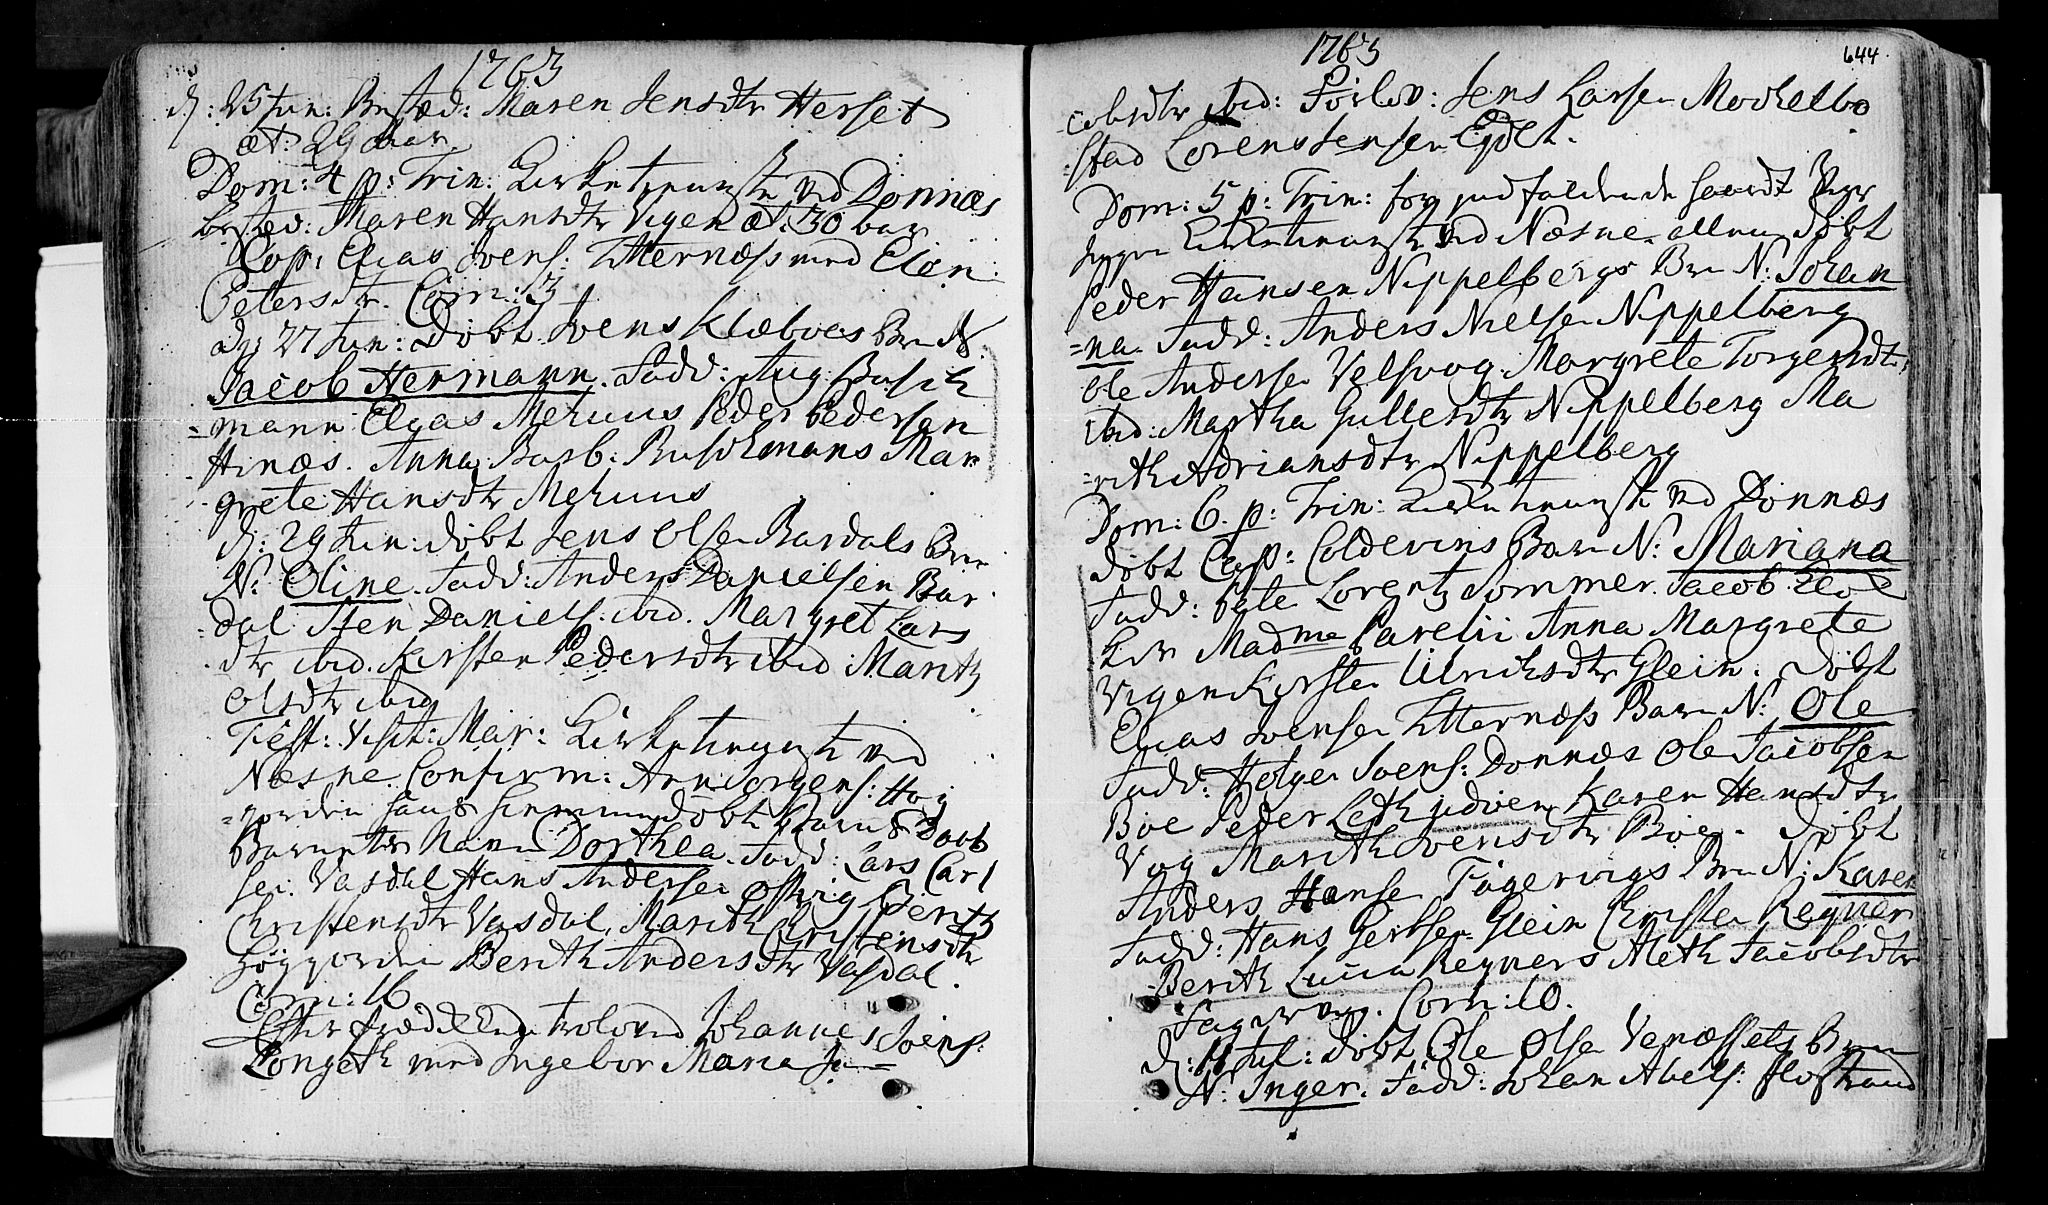 1763
d: 25 Jun: Bested: Maren Jensdtr Herset
æt: 29 aar
Dom: 4 p: Trin: Kirketienneste ved Dønnæs
bested: Maren Hansdtr Vigen æt: 30 aar
Cop: Elias Ivens: Titternæss med Elen
Petersdtr. Com: 13
d: 27 Jun: døbt Ivens Klæboes Barn N:
Jacob Hermann. Fadd: Aug: Busch
=mann Elias Mehuus Peder Pedersen
Hinæs. Anna Barb: Buschmans Mar
grete Hansdtr Mehuus
d: 29 Jun: døbt Jens Olsen Bardals Barn
N: Oline. Fadd: Anders Danielsen Bar
dal Sten Daniels: ibid. Margret Lars
dtr ibid. Kirsten Pedersdtr ibid Marith
Olsdtr ibid
Fest: Visit: Mar: Kirketienneste ved
Næsne. Confirm: Arn Jörgens: Høj
=gorden døbt Daab
Barnets Navn Dorthea. Fadd: Lars Carl
sen Vasdal Hans Andersen Berith
Christensdtr Vasdal, Marith Christensdtr
Høygorden Berith Andersdtr Vasdal.
Com: 16
Efter trolovd Johannes Ivens:
Longeth med Ingebor Maria Ja=
1763
644
=cobsdtr ibid: Forlov: Jens Larsen Mockelbo
=stad Lorens Jensen Eydet.
Dom: 5 p: Trin: for indfaldende haardt Veyr
ingen Kirketienneste ved Næsne allene døbt
Peder Hansen Nippelbergs Barn N: Johan
=na. Fadd: Anders Nielsen Nippelberg
Ole Andersen Velsvog Margrete Torgersdtr
ibid: Martha Gullersdtr Nippelberg Ma
=rith Adriansdtr Nippelberg
Dom: 6. p: Trin: Kirketienneste ved Dønnæs
døbt Cap: Coldevins Barn N: Mariana
Fadd: Lorentz Sommer. Jacob
Madme Parelii Anna Margrete
Vigen Kirsten Ulrichsdtr Glein. døbt
Elias Ivensen Titternæss Barn N: Ole
Fadd: Holger Ivens: Donnæs Ole Jacobsen
Böe Peder Karen Hansdtr
Vog Marith Ivensdtr Böe. døbt
Anders Hansen Fagervigs Barn N: Karen
Fadd: Hans Gertsen Glein Christen Regner
Berith Lucia Regners Aleth Jacobsdtr
Fagervig. Com: 10.
d: 11 Jul: døbt Ole Olsen Venæssets Barn
N: Inger. Fadd: Johan Abels: Flostrand